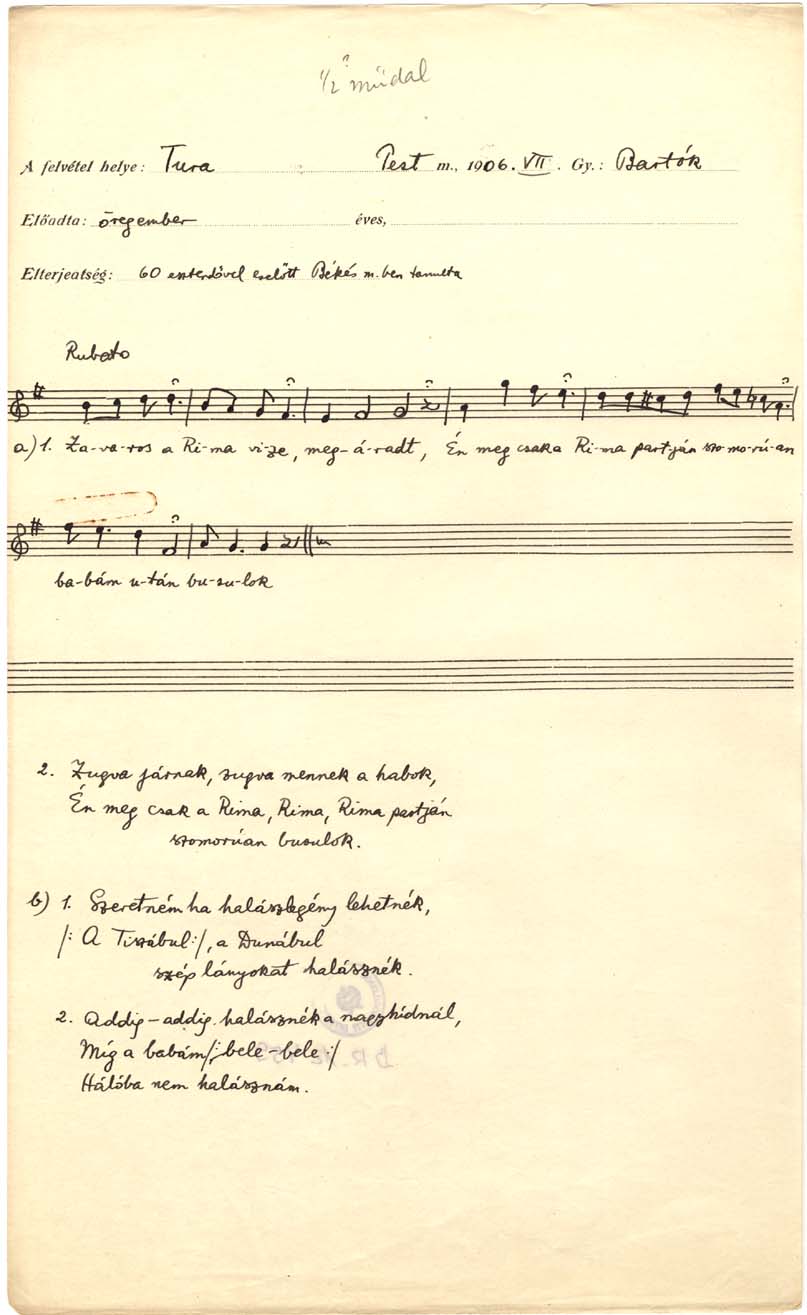 1/2 műdal
A felvétel helye: Tura Pest m., 1906. VII. Gy.: Bartók
Előadta: öregember éves,
Elterjedtség: 60 esztendővel ezelőtt Békés m.ben tanulta
Rubato
a) 1. Za-va-ros a Ri-ma vi-ze, meg-á-radt, Én meg csak a Ri-ma part-ján szo-mo-rú-an
ba-bám u-tán bu-su-lok
2. Zugva járnak, zugva mennek a habok,
Én meg csak a Rima, Rima, Rima partján
szomorúan busulok.
b) 1. Szeretném ha halászlegény lehetnék,
/: A Tiszábul :/, a Dunábul
szép lányokat halásznék.
2. Addig-addig halásznék a nagyhídnál,
Míg a babám /: bele-bele :/
Hálóba nem halásznám.